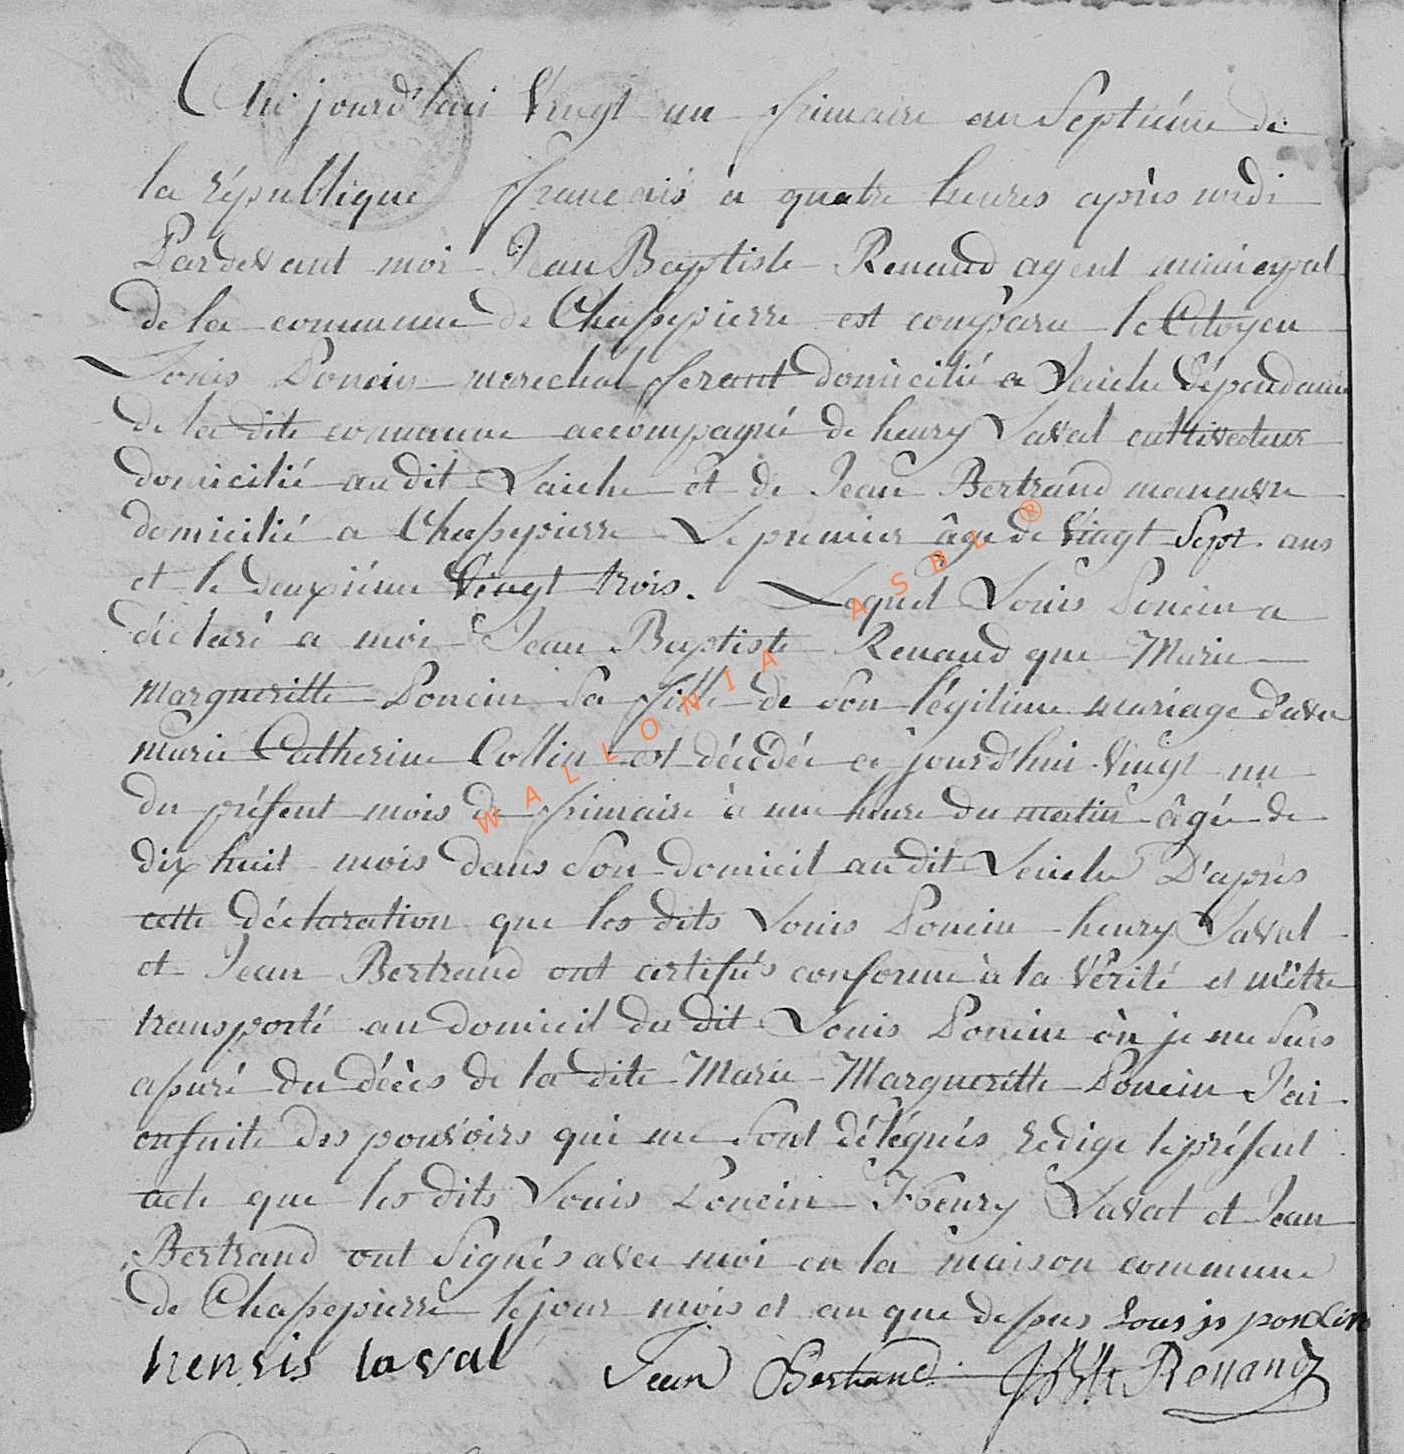 Au jourd'hui Vingt un frimaire an Septième de
la république francais à quatre heures après midi
Pardevant moi Jean Baptiste Renaud agent municipal
de la commune de Chassepierre est comparu le Citoyen
Louis Poncin marechal ferant domicilié a Laiche Dépendance
de la dite commune accompagné de henry Laval cultivateur
domicilié au dit Laiche et de Jean Bertrand manuvre
domicilié a Chassepierre Le premier âgé de Vingt Sept ans
et le deuxième Vingt trois. Lequel Louis Poncin a
déclaré a moi Jean Baptiste Renaud que Marie
Margueritte Poncin Sa fille de Son légitime mariage d'avec
Marie Catherine Collin est décédée ce jourd'hui Vingt un
du présent mois de frimaire à une heure du matin âgée de
dix huit mois dans Son domicil au dit Laiche D'après
cette déclaration que les dits Louis Poncin henry Laval
et Jean Bertrand ont certifiés conforme à la Vérité et m'être
transporté au domicil du dit Louis Poncin où je me suis
assuré du décès de la dite Marie Margueritte Poncin J'ai
ensuite des pouvoirs qui me Sont délégués redigé le présent
acte que les dits Louis Poncin Henry Laval et Jean
Bertrand ont Signés avec moi en la maison commune
de Chassepierre le jour mois et an que dessus Louis ponsin
henris laval Jean Bertrand JBte Renaud
WALLONIA ASBL ®